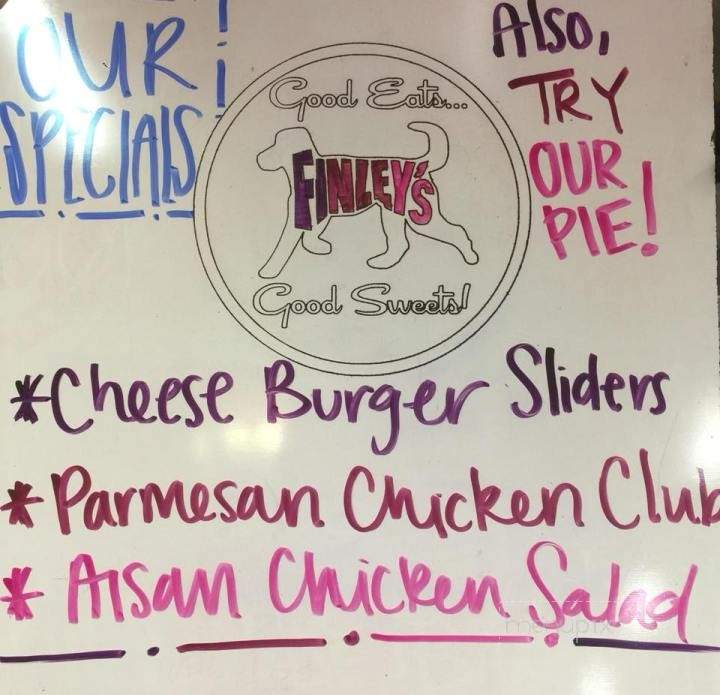 OUR
SPECIALS!
Good Eats...
FINLEY'S
Good Sweets!
Also,
TRY
OUR
PIE!
*Cheese Burger Sliders
*Parmesan Chicken Club
* AIsan Chicken Salad